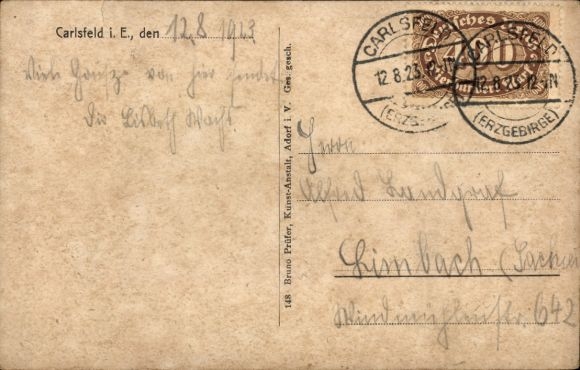 Carlsfeld i. E., den 12.8 1923
Viele Grüße von hier sendet
Dir Lisbeth
148 Bruno Prüfer, Kunst-Anstalt, Adorf i. V. Ges. gesch.
CARLSFELD
12.8.23. -N
(ERZGEBIRGE)
Deutsches Reich
400
CARLSFELD
12.8.23.12-N
(ERZGEBIRGE)
Herrn
Alfred Landgraf
Limbach (Sachsen
Windmühlenstr. 642